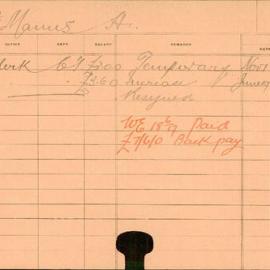 Manus A.
OFFICE DEPT. SALARY REMARKS
Clerk C.T £200 Temporary Nov 1
£260 Increase June
Resigned
WE 18/ Paid
£7/6/0 Back pay